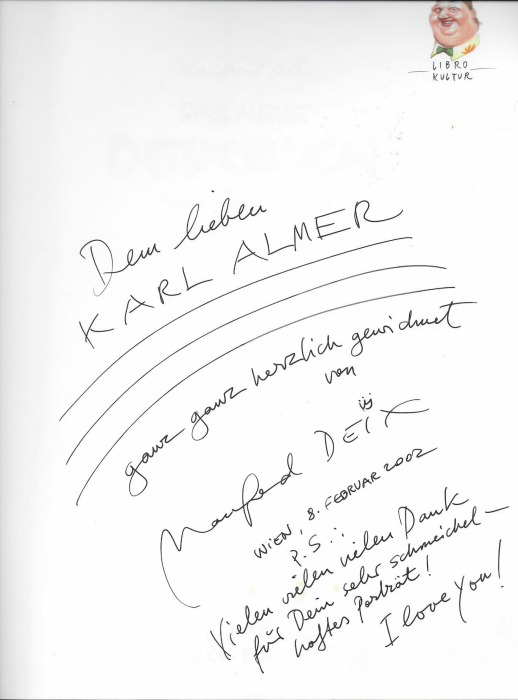 LIBRO
KULTUR
Dem lieben
KARL ALMER
ganz ganz herzlich gewidmet
von
Manfred DEIX
WIEN, 8. FEBRUAR 2002
P.S.:
Vielen vielen vielen Dank
für Dein sehr schmeichel-
haftes Porträt!
I love You!